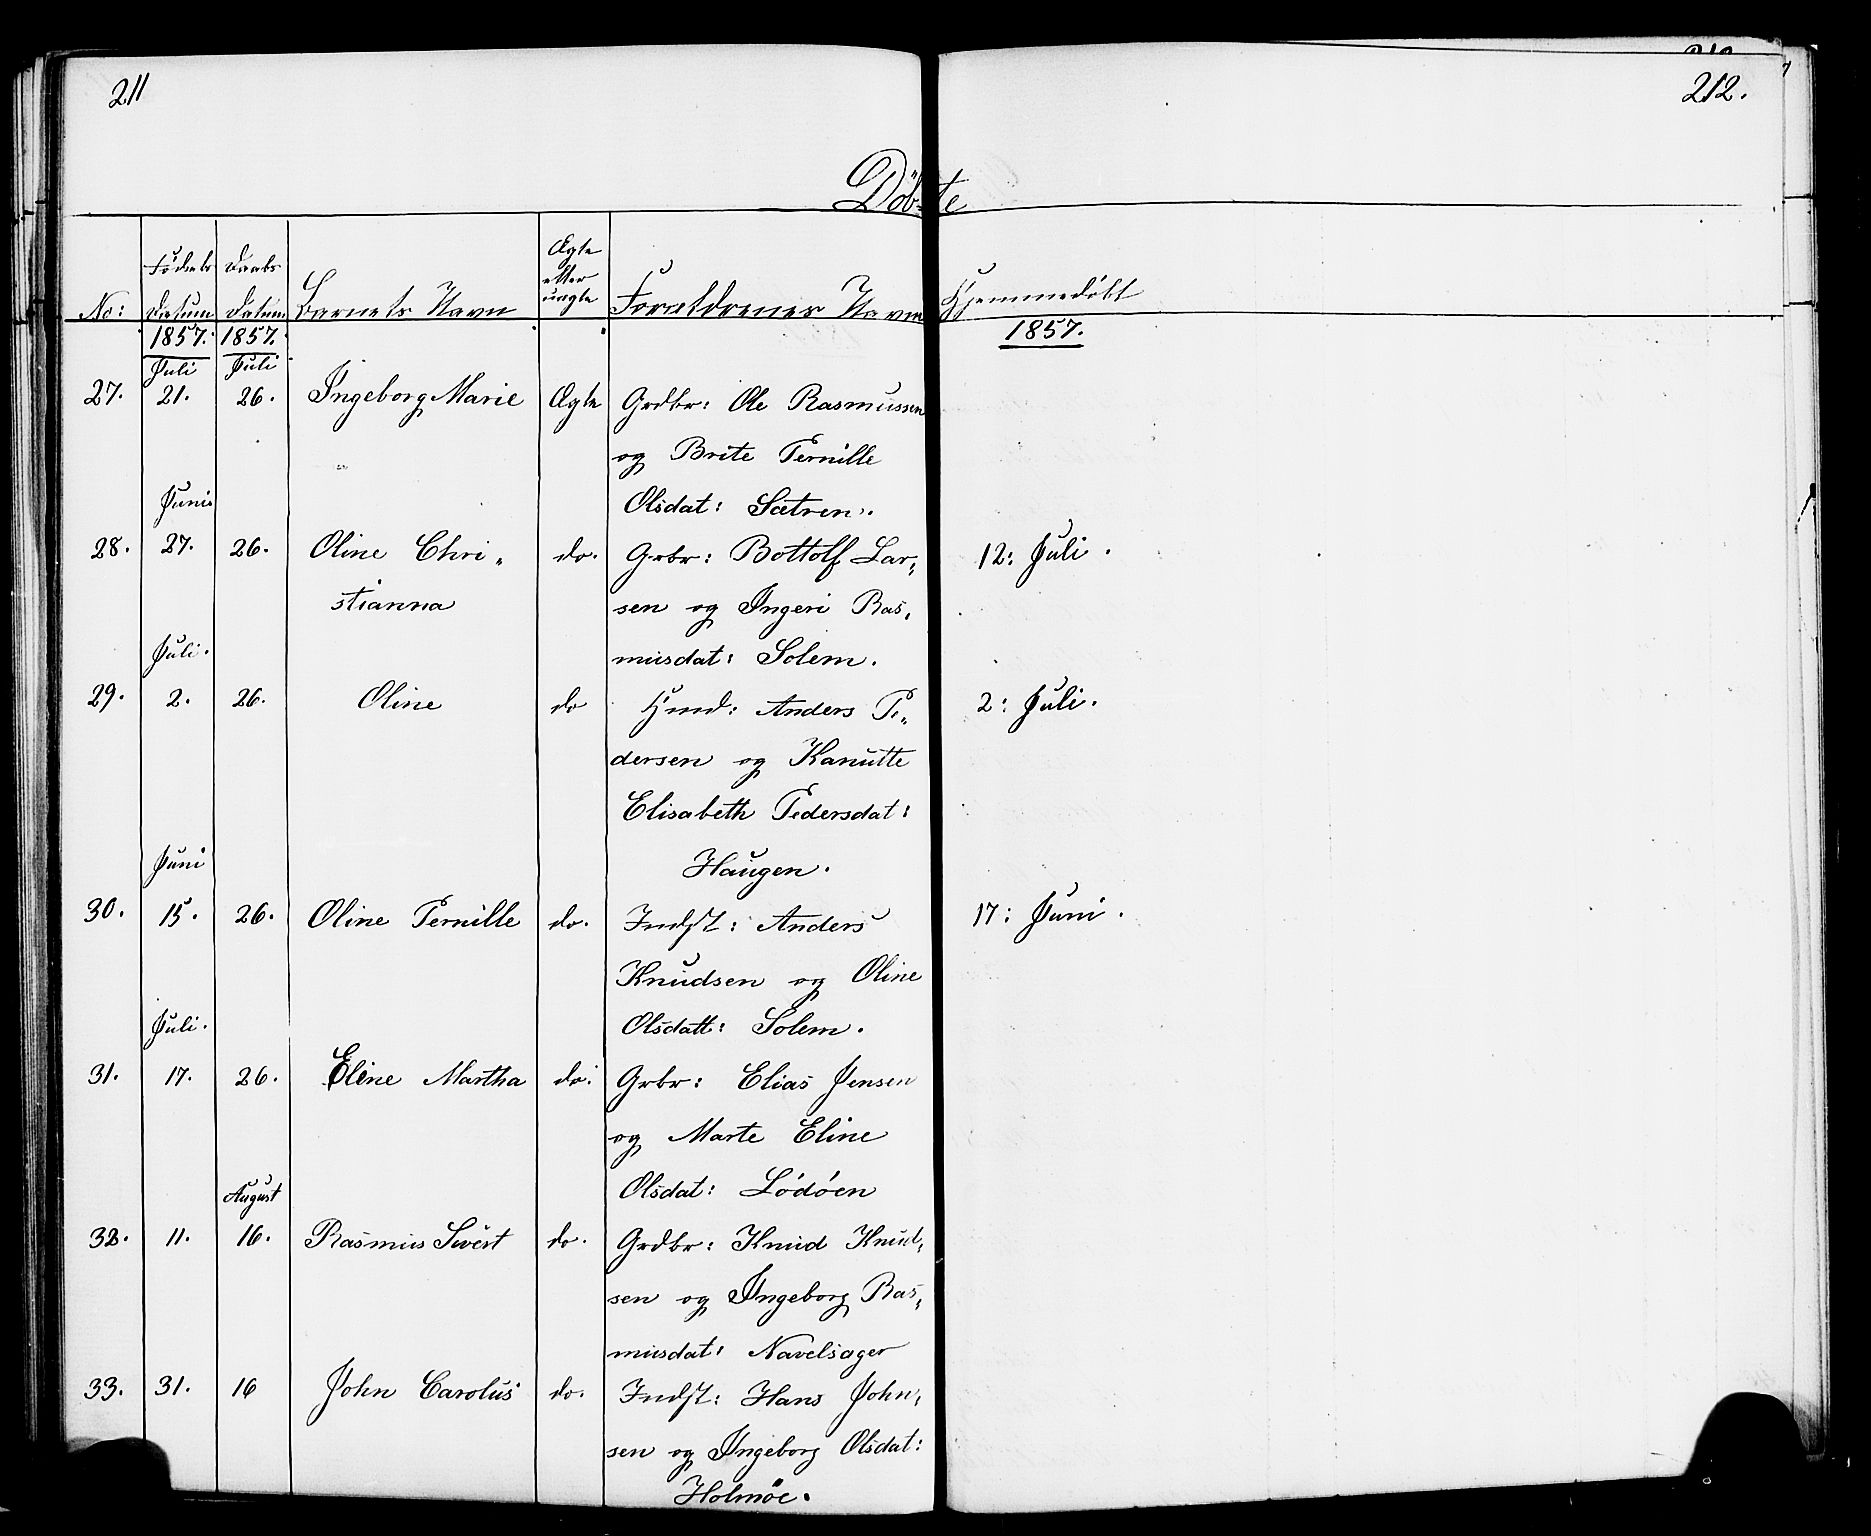 211
212.
Döbte
No: Födsels Datum Daabs Datum Barnets Navn Ægte eller uægte Forældrenes Navn Hjemmedöbt
1857. 1857. 1857.
Juli Juli
27. 21. 26. Ingeborg Marie Ægte Grdbr: Ole Rasmussen
og Brite Pernille
Juni Olsdat: Sætren.
28. 27. 26. Oline Chri- do. Grbr: Bottolf Lar- 12: Juli.
stianna sen og Ingeri Ras-
Juli. musdat: Solem.
29. 2. 26. Oline do Hmd: Anders Pe- 2: Juli.
dersen og Kanutte
Elisabeth Pedersdat:
Juni Haugen.
30. 15. 26. Oline Pernille do. Indst: Anders 17: Juni.
Knudsen og Oline
Juli. Olsdatt: Solem.
31. 17. 26. Eline Martha do. Grbr: Elias Jensen
og Marte Eline
August Olsdat: Lödöen
32. 11. 16. Rasmus Sivert do. Grdbr: Knud Knud-
sen og Ingeborg Ras-
musdat: Navelsager
33. 31. 16 John Carolus do. Indst: Hans John-
sen og Ingeborg Olsdat:
Holmöe.